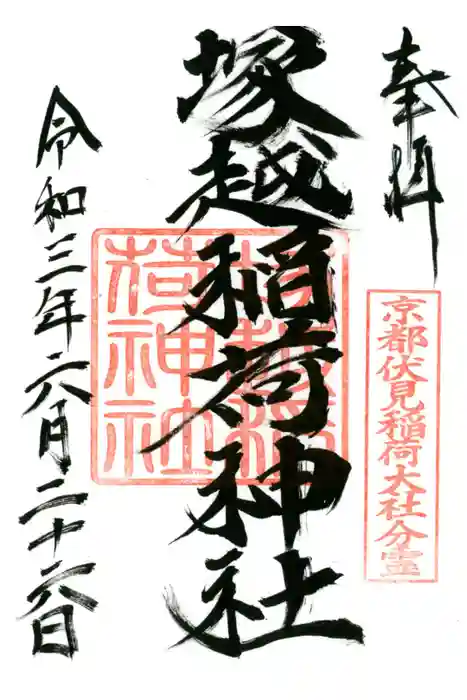 奉拝
京都伏見稲荷大社分霊
塚越稲荷神社
荷神社
令和三年六月二十六日